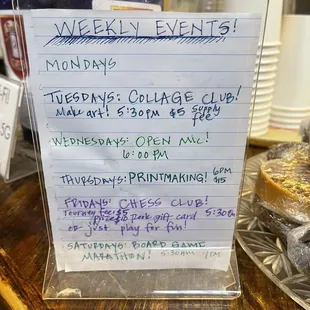 WEEKLY EVENTS!
MONDAYS
TUESDAYS: COLLAGE CLUB!
Make art! 5:30PM $5 supply fee
WEDNESDAYS: OPEN MIC!
6:00 PM
THURSDAYS: PRINTMAKING! 6PM $15
FRIDAYS: CHESS CLUB!
Tourney fee: $5 5:30
prize: $10 perk gift card
or just play for fun!
SATURDAYS: BOARD GAME
MARATHON!